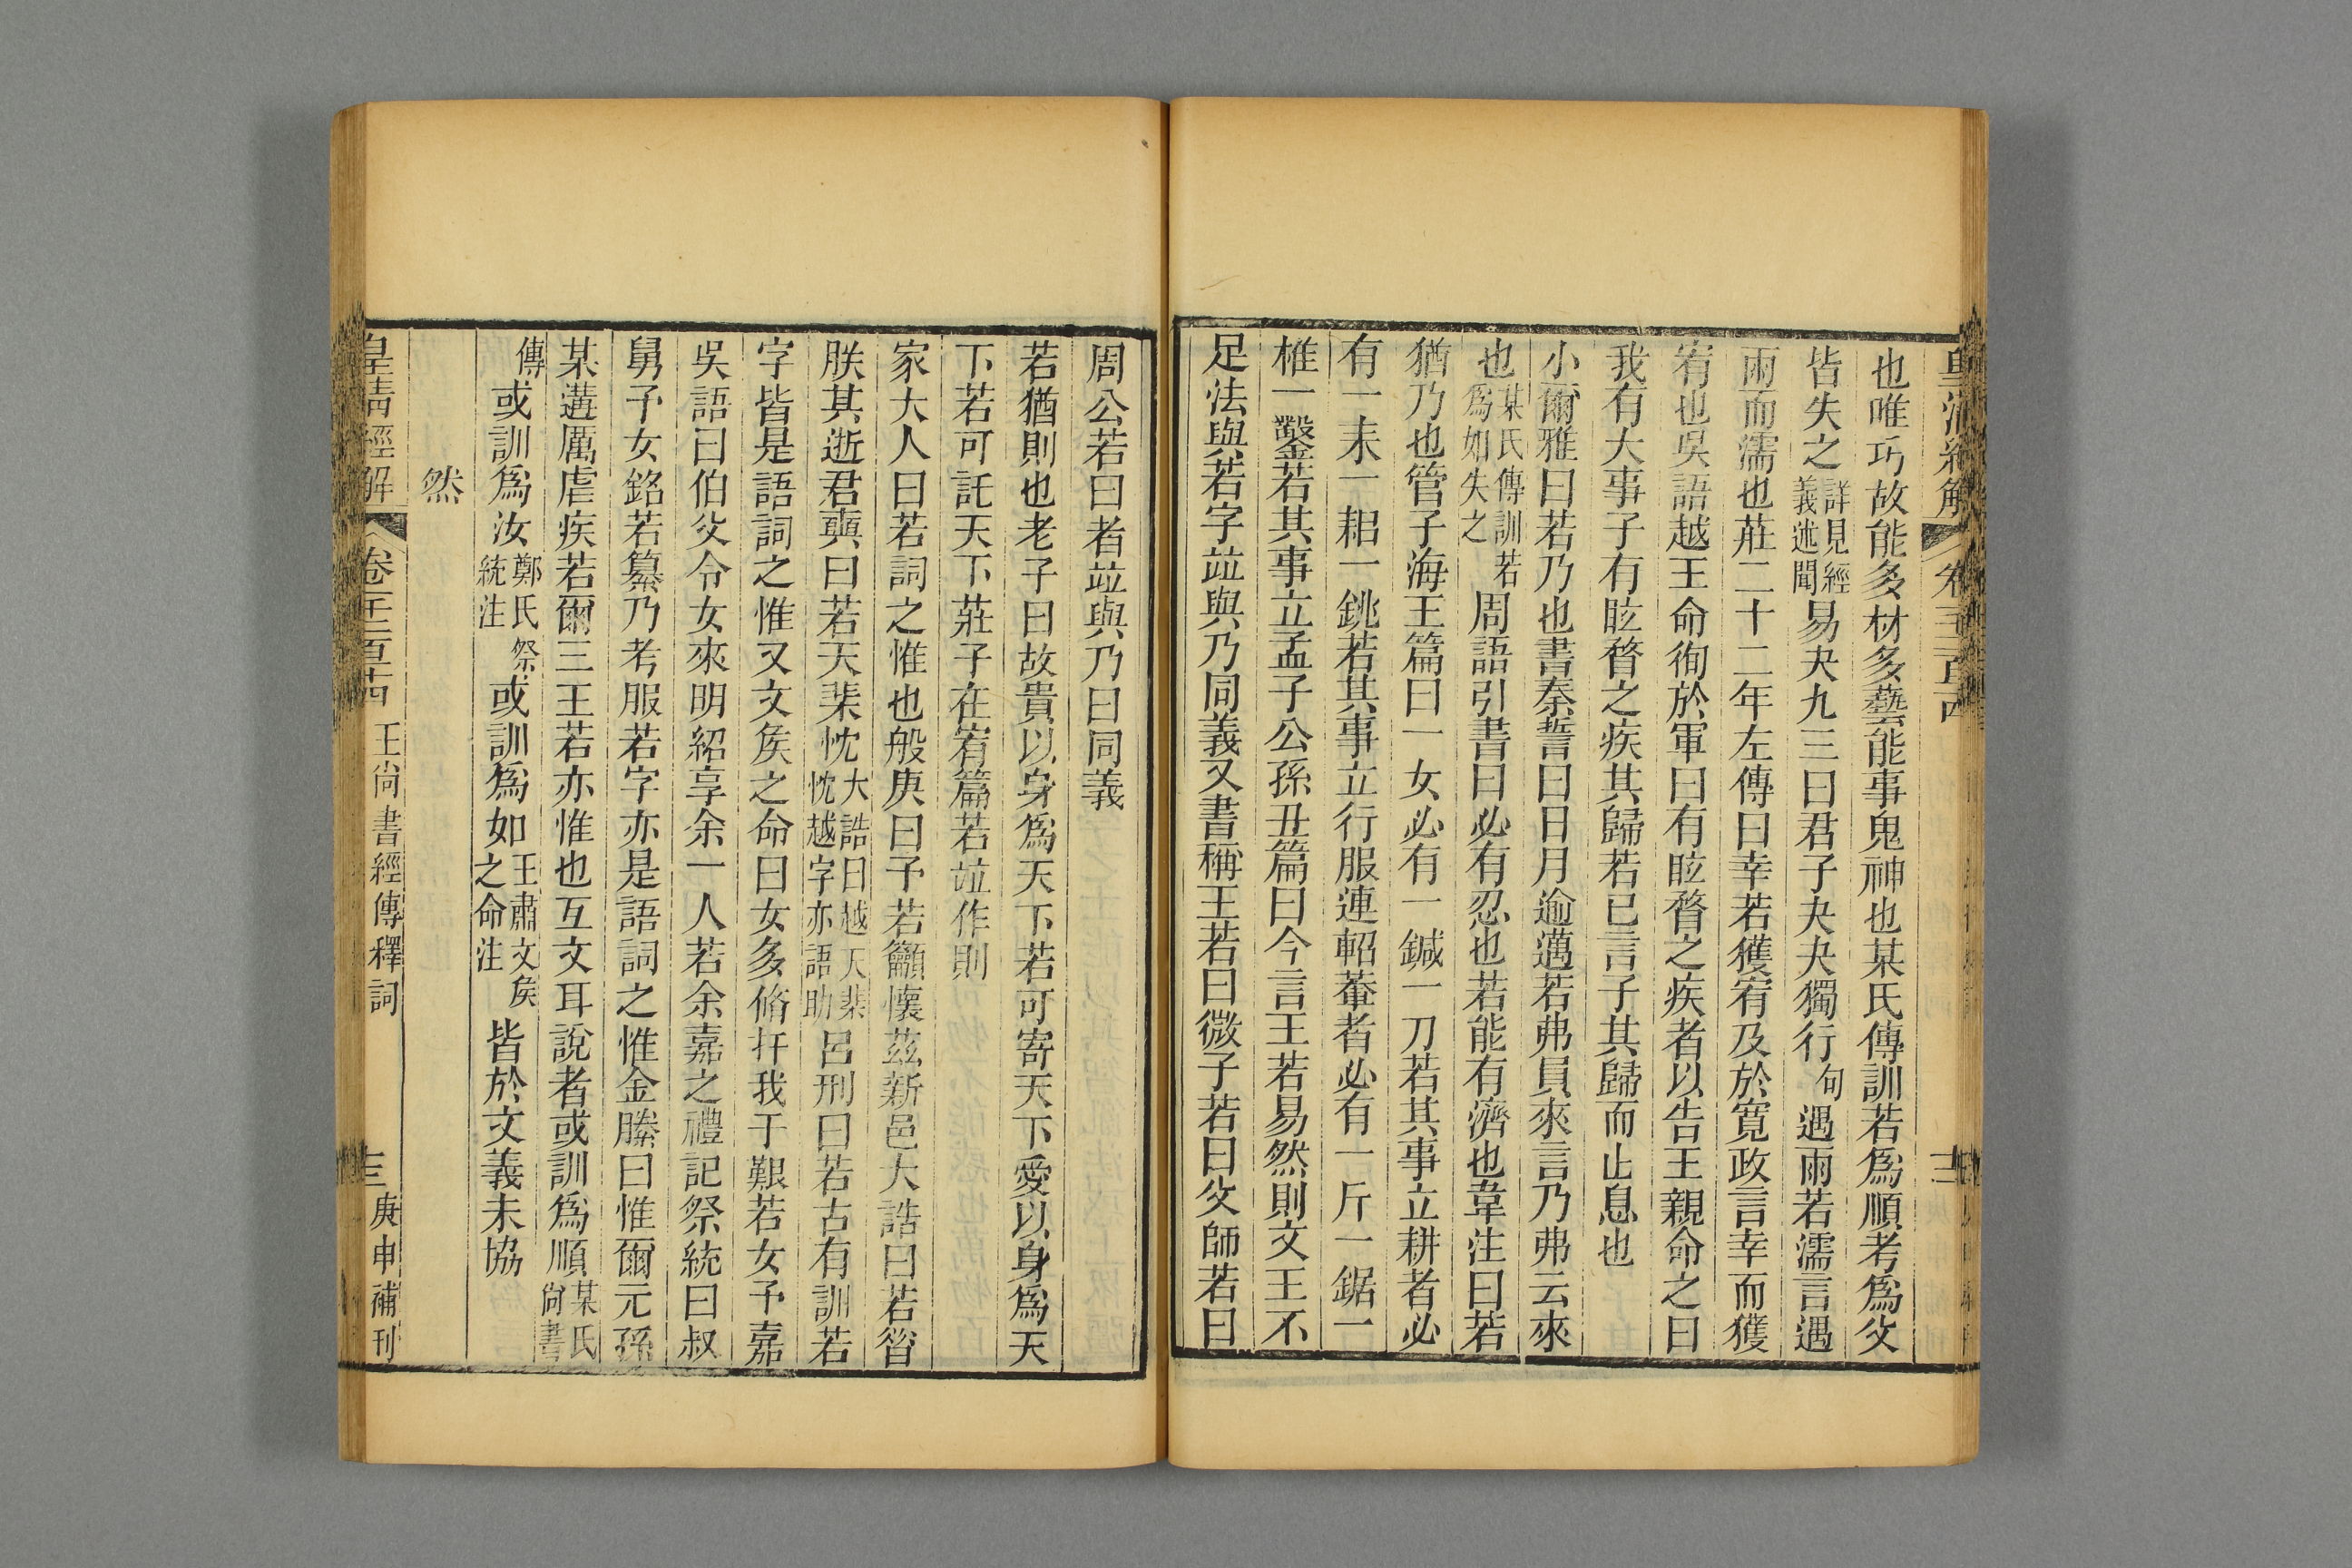 也唯巧故能多材多藝能事鬼神也某氏傳訓若爲順考爲父
皆失之詳見經義述聞易夬九三曰君子夬夬獨行句遇雨若濡言遇
雨而濡也莊二十二年左傳曰幸若獲宥及於寛政言幸而獲
宥也吳語越王命徇於軍曰有眩瞀之疾者以告王親命之曰
我有大事子有眩瞀之疾其歸若已言子其歸而止息也
小爾雅曰若乃也書秦誓曰日月逾邁若弗員來言乃弗云來
也某氏傳訓若爲如失之周語引書曰必有忍也若能有濟也韋注曰若
猶乃也管子海王篇曰一女必有一鍼一刀若其事立耕者必
有一耒一耜一銚若其事立行服連軺輂者必有一斤一鋸一
椎一鑿若其事立孟子公孫丑篇曰今言王若易然則文王不
足法與若字竝與乃同義又書稱王若曰微子若曰父師若曰
周公若曰者竝與乃曰同義
若猶則也老子曰故貴以身爲天下若可寄天下愛以身爲天
下若可託天下莊子在宥篇若竝作則
家大人曰若詞之惟也般庚曰予若籲懷茲新邑大誥曰若昝
朕其逝君奭曰若天棐忱大誥曰越天棐忱越字亦語助呂刑曰若古有訓若
字皆是語詞之惟又文矦之命曰女多脩扞我于艱若女予嘉
吳語曰伯父令女來明紹享余一人若余嘉之禮記祭統曰叔
舅予女銘若纂乃考服若字亦是語詞之惟金縢曰惟爾元孫
某遘厲虐疾若爾三王若亦惟也互文耳說者或訓爲順某氏尙書
傳或訓爲汝鄭氏祭統注或訓爲如王肅文矦之命注皆於文義未協
然
皇淸經解
卷一千二百十四
王尙書經傳釋詞
庚申補刊